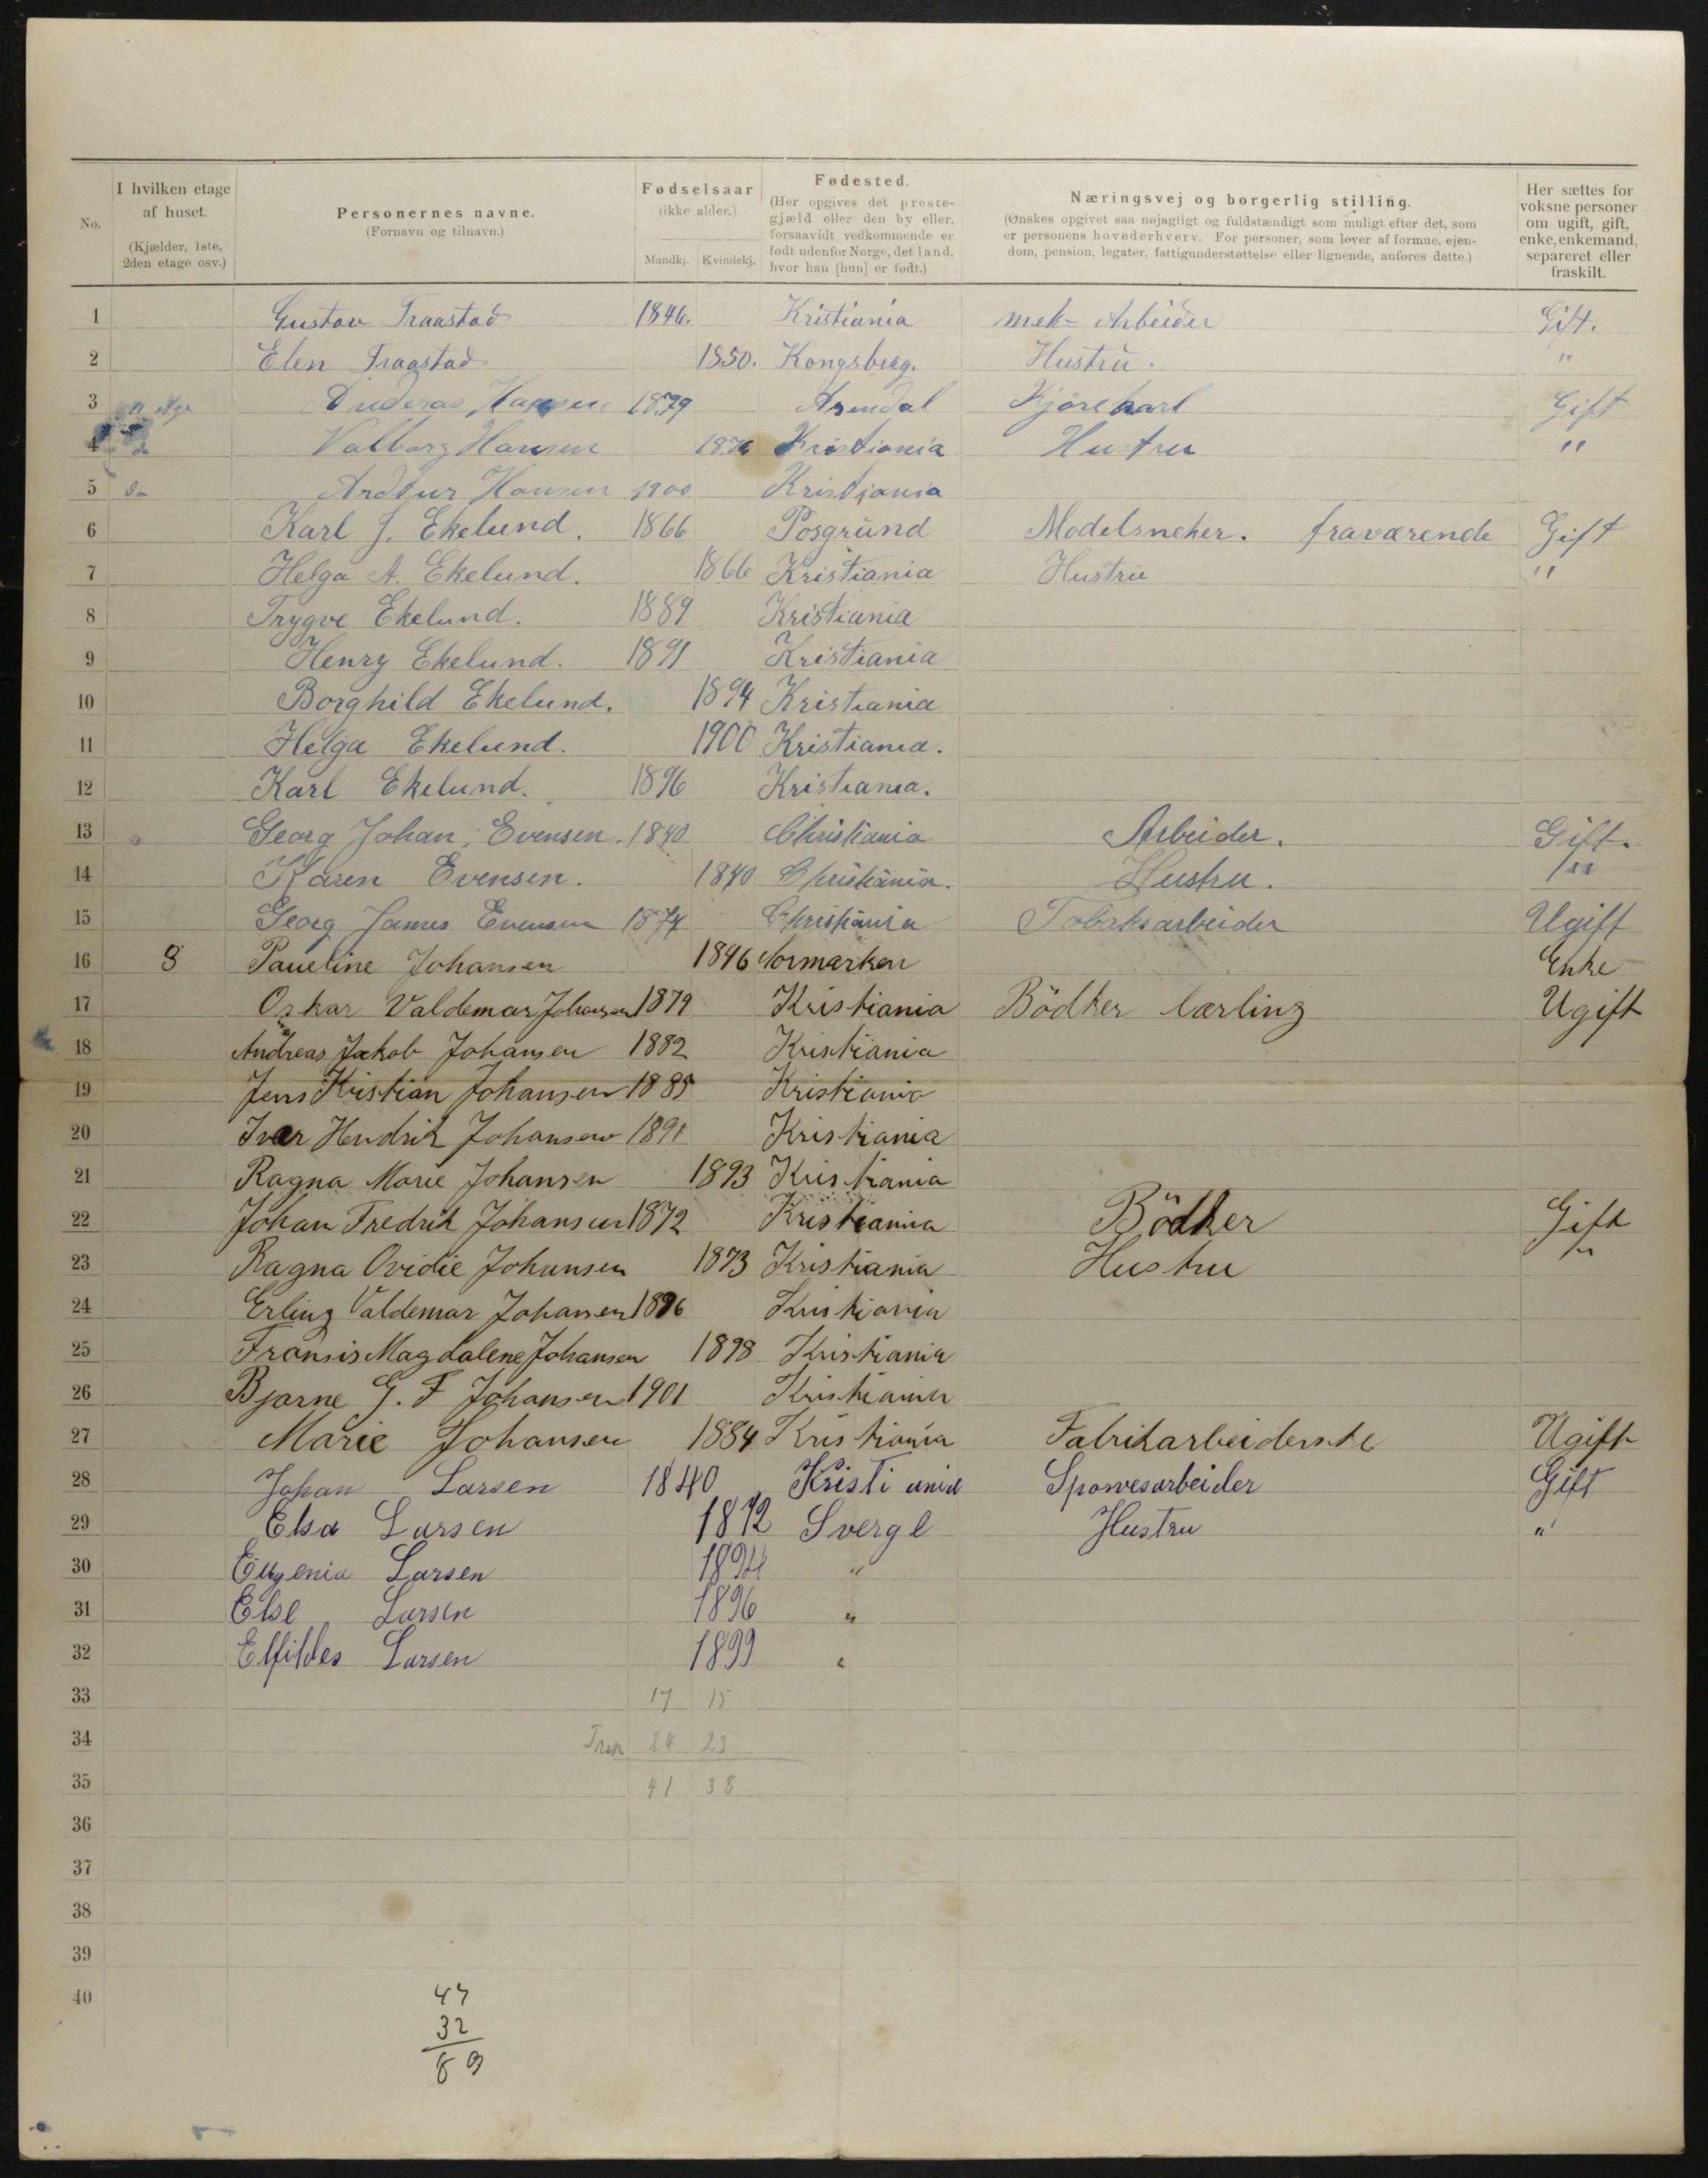 No. I hvilken etage af huset. (Kjælder, 1ste, 2den etage osv.) Personernes navne. (Fornavn og tilnavn.) Fødselsaar (ikke alder.) Mandkj. Kvindekj. Fødested. (Her opgives det prestegjæld eller den by eller, forsaavidt vedkommende er født udenfor Norge, det land, hvor han [hun] er født.) Næringsvej og borgerlig stilling. (Ønskes opgivet saa nøjagtigt og fuldstændigt som muligt efter det, som er personens hovederhverv. For personer, som lever af formue, ejendom, pension, legater, fattigunderstøttelse eller lignende, anføres dette.) Her sættes for voksne personer om ugift, gift, enke, enkemand, separeret eller fraskilt.
1 Gustav Traastad 1846. Kristiania mek- Arbeider Gift.
2 Elen Traastad 1850. Kongsberg. Hustru. "
3 Anderas Hansen 1879 Arendal Kjørekarl Gift
4 Valborg Hansen 1876 Kristiania Hustru "
5 Do Ardtur Hansen 1900 Kristiania
6 Karl J. Ekelund. 1866 Posgrund Modelsneker. fraværende Gift
7 Helga A. Ekelund. 1866 Kristiania Hustru "
8 Trygve Ekelund. 1889 Kristiania
9 Henry Ekelund. 1891 Kristiania
10 Borghild Ekelund. 1894 Kristiania
11 Helga Ekelund. 1900 Kristiania.
12 Karl Ekelund. 1896 Kristiania.
13 Georg Johan Evensen. 1840 Christiania Arbeider. Gift.
14 Karen Evensen. 1840 Christiania. Hustru. "
15 Georg James Evensen 1874 Christiania Tobaksarbeider Ugift
16 8 Paueline Johansen 1846 Normarken Enke
17 Oskar Valdemar Johansen 1879 Kristiania Bödker lærling Ugift
18 Andreas Jakob Johansen 1882 Kristiania
19 Jens Kristian Johansen 1885 Kristiania
20 Ivar Hendrik Johansen 1891 Kristiania
21 Ragna Marie Johansen 1893 Kristiania
22 Johan Fredrik Johansen 1872 Kristiania Bödker Gift
23 Ragna Ovidie Johansen 1873 Kristiania Hustru "
24 Erling Valdemar Johansen 1896 Kristiania
25 Fransis Magdalene Johansen 1898 Kristiania
26 Bjarne G. F Johansen 1901 Kristiania
27 Marie Johansen 1884 Kristiania Fabrikarbeiderske Ugift
28 Johan Larsen 1840 Kristiania Sporvesarbeider Gift
29 Elsa Larsen 1872 Sverge Hustru "
30 Eugenia Larsen 1894 "
31 Else Larsen 1896 "
32 Elfildes Larsen 1899 "
33 17 15
34 Trsp 24 23
35 41 38
36
37
38
39
40
47
32
89